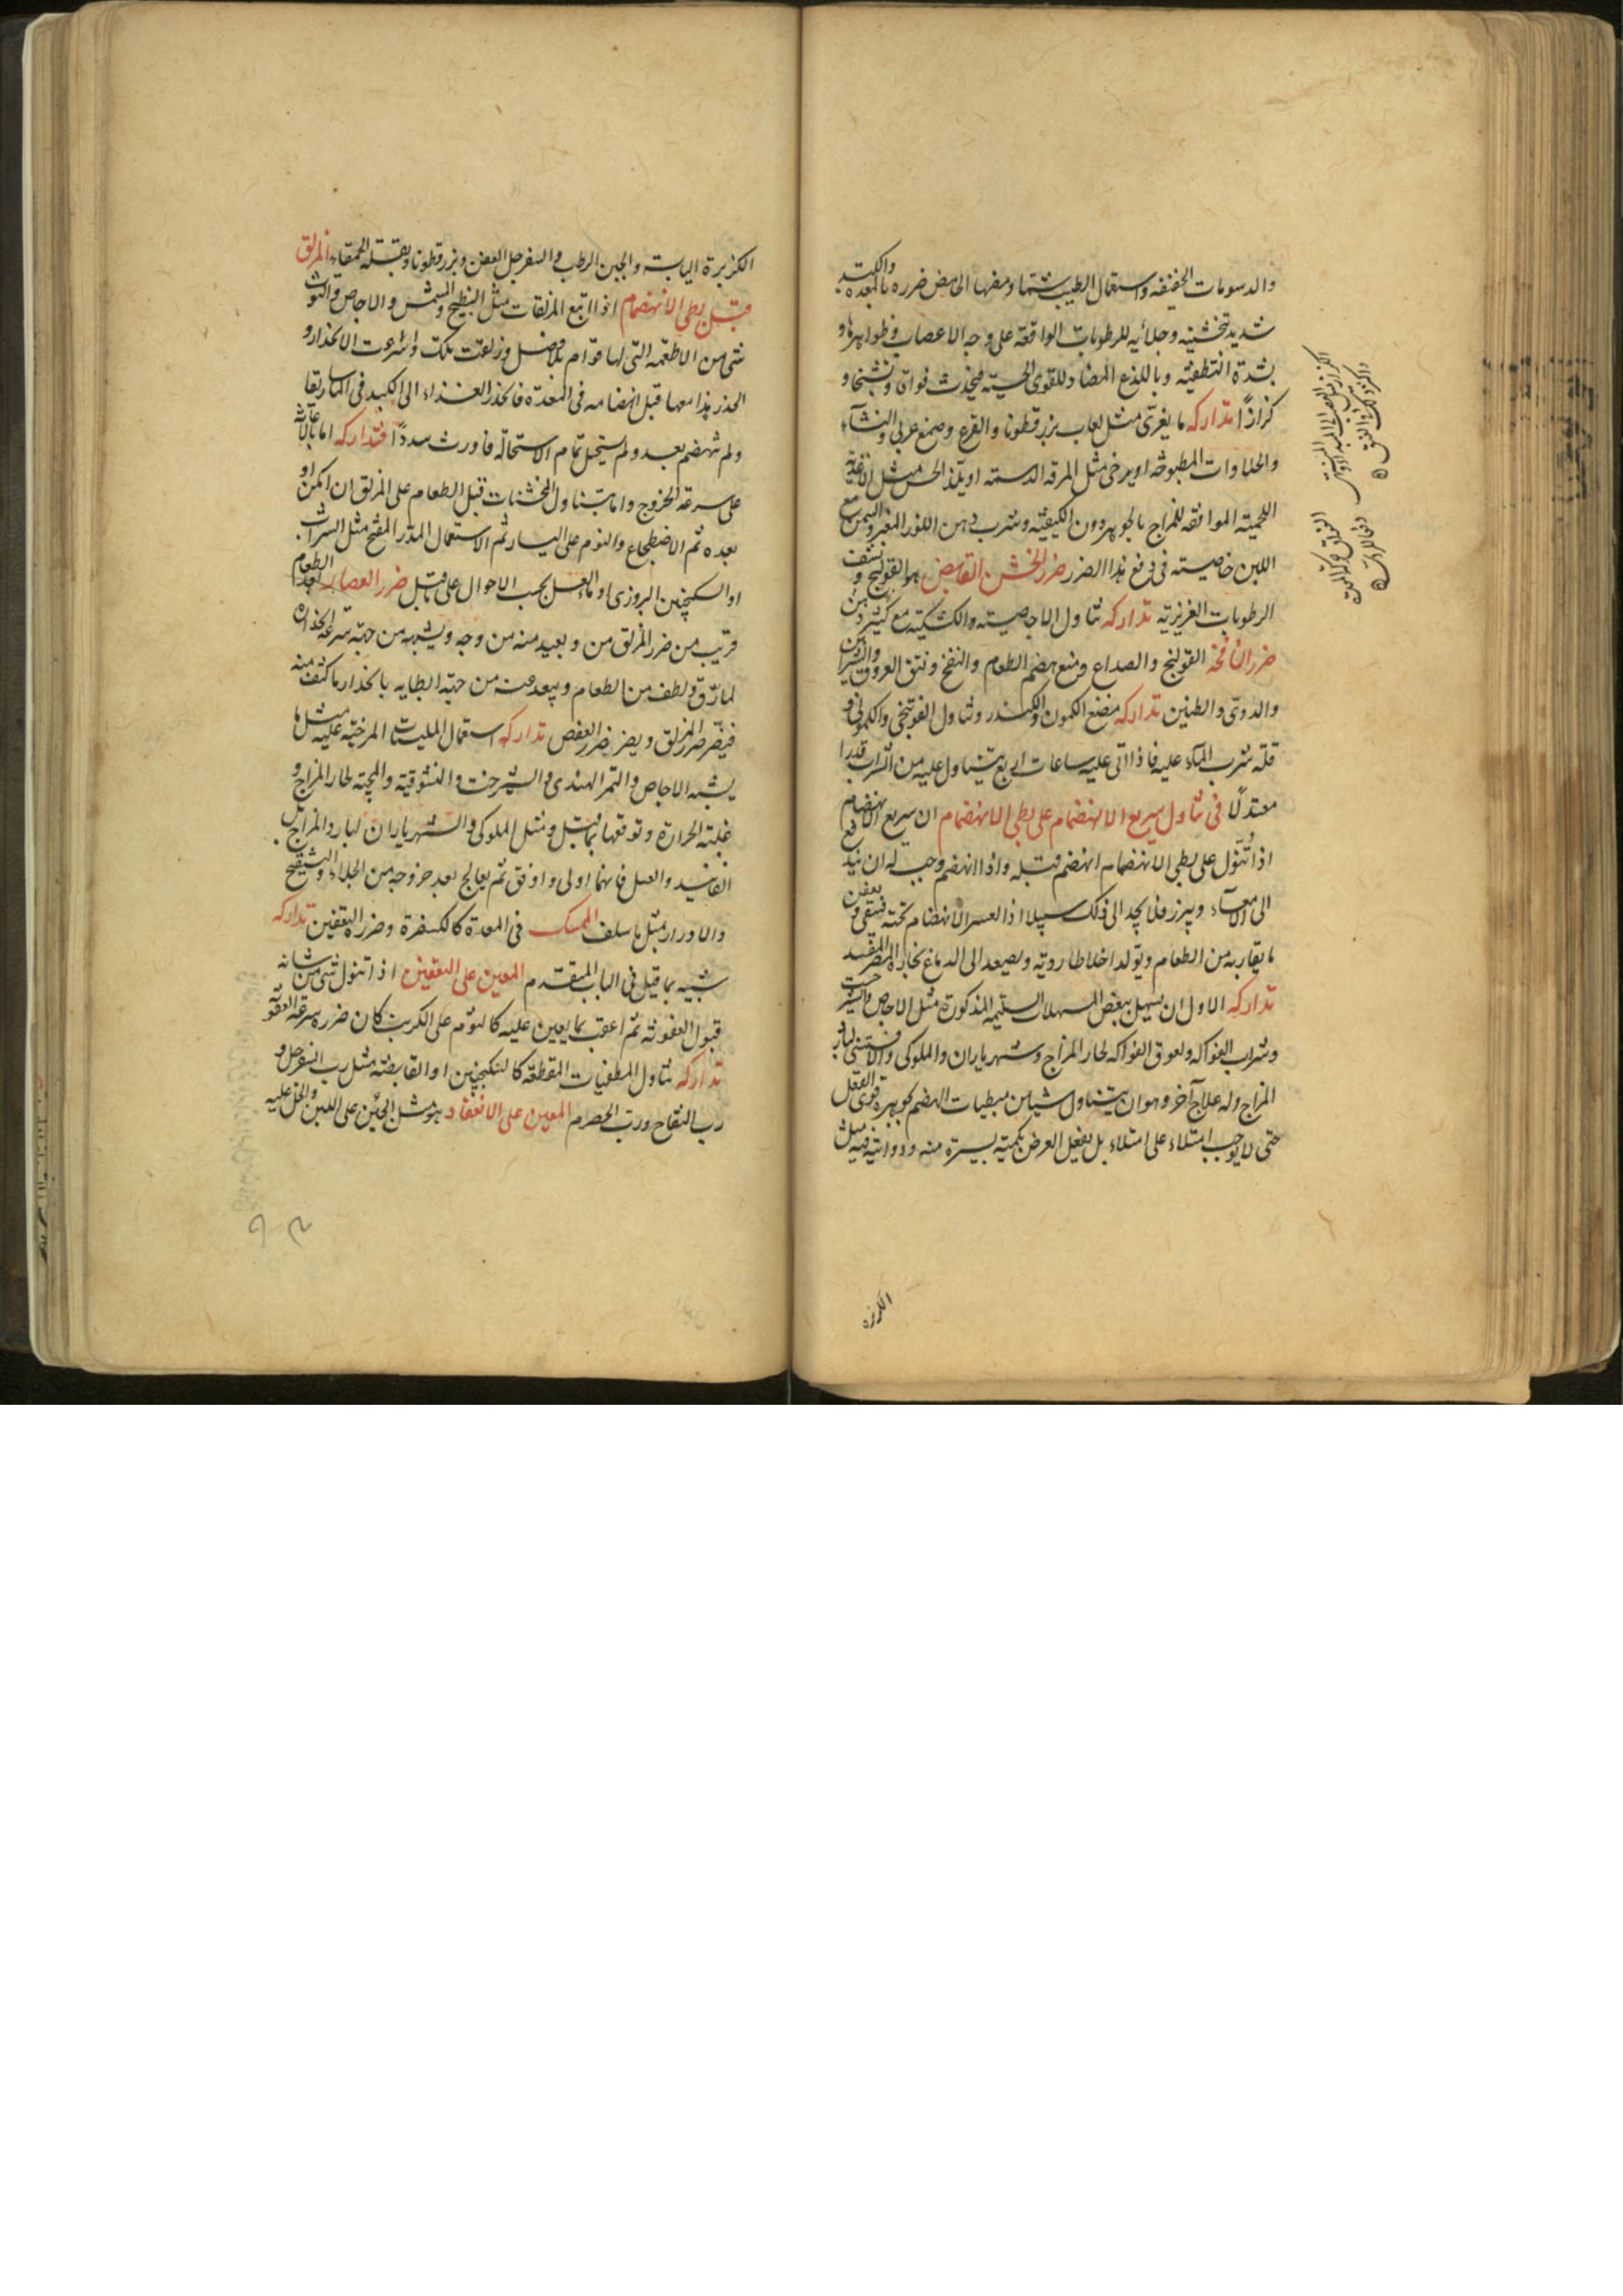 والدسومات الخفيفة واستعمال الطيب شما ومضغها الحامض ضرره بالمعدة والكبد
شديد تخشينه وجلائه للرطوبات الواقعة على وجه الاعصاب وظواهرها و
بشدة التقطيعه وباللذع المضاد للقوى الحسية فيحدث فواقا وتشنجا و
كزازًا تداركه ما يغرى مثل لعاب بزرقطونا والقرع وصمغ عربى والنشاء
والحلاوات المطبوخة او يرخى مثل المرقة الدسمة او يلذ الحس مثل الاغذية
اللحمية الموافقة للمزاج بالجوهر دون الكيفية وشرب دهن اللوز المغير والسمن مع
اللبن خاصيته فى دفع هذا الضرر ضرر الخشن القابض هو القولنج ونشف
الرطوبات الغريزية تداركه تناول الاجاصية والكشكية مع كثير دهن
ضرر النافخة القولنج والصداع ومنع هضم الطعام والنفخ وفتق العروق
والدوى والطنين تداركه مضغ الكمون والكندر وتناول الفوتنجى والكمونى و
قلة شرب الماء عليه فاذا اتى عليه ساعات اربع يتناول عليه من الشراب قدرا
معتدلًا فى تناول سريع الانهضام على بطى الانهضام ان سريع الانهضام
اذا تُنوّل على بطى الانهضام انهضم قبله واذا انهضم وجب له ان يندفع
الى الامعاء ويبرز فلا يجد الى ذلك سبيلا اذ العسر الانهضام تحته فيبقى ويعفن
ما يقاربه من الطعام ويولد اخلاطا رديه ويصعد الى الدماغ بخاره المضر المفسد
تداركه الاول ان يسهل ببعض المسهلات السليمة المذكورة مثل الاجاص والشيرخشت
وشراب الفواكه ولعوق الفواكه لحار المزاج وشهرياران والملوكى لبارد
المزاج وله علاج آخر وهو ان يتناول شيا من مبطيات الهضم كوهره قوى الفعل
حتى لا يوجب امتلاء على امتلاء بل يفعل الغرض بكمية يسيرة منه ودوائية فيه مثل
الكزبرة
الكزبرة اليابسة والجبن الرطب والسفرجل العفص وبزرقطونا وبقلة الحمقاء المزلق
قبل بطى الانهضام اذا اتبع المزلقات مثل البطيخ والمشمش والاجاص والتوث
شى من الاطعمة التى لها قوام بلا فصل وزلقت تلك واسرعت الانحدار و
انحدر هذا معها قبل انهضامه فى المعدة فانحذر الغذاء الى الكبد فى الماساريقا
ولم ينهضم بعد ولم يستحل تمام الاستحالة فاورث سددًا فتداركه اما بالاعانة
على سرعة الخروج واما بتناول المخشنات قبل الطعام على المزلق ان امكن او
بعده ثم الاضطجاع والنوم على اليسار ثم الاستعمال المدر المفتح مثل الشراب
او السكنجبين البزورى او ماء العسل بحسب الاحوال على ما قيل ضرر العصارة بعد الطعام
قريب من ضرر المزلق من وبعيد منه من وجه ويشبهه من جهة سرعة انحداره
لما رق ولطف من الطعام ويبعد عنه من جهة ابطايه بانحدار ما كثف منه
فيضر ضرر المزلق ويضر ضرر العفص تداركه استعمال الملينات المرخية عليه مثل ما
يشبه الاجاص والتمر الهندى والشيرخشت لحار المزاج و
غلبة الحرارة وتوقعها بما قبل ومثل الملوكى والشهرياران لبارد المزاج بل
الفانيد والعسل فانهما اولى واوفق ثم يعالج بعد خروجه من الجلاء والتفتيح
والادرار بمثل ما سلف الممسك فى المعدة كالكسفرة وضرره التعفين تداركه
شبيه بما قيل فى الباب المتقدم المعين على التعفين اذا تنول شى من شانه
قبول العفونة ثم اعقب بما يعين عليه كالثوم على الكرنب كان ضرره سرعة العفونة
تداركه تناول المطفيات المقطعة كالسكنجبين او القابضة مثل رب السفرجل و
رب التفاح ورب الحصرم المعين على الانعقاد هو مثل الجبن على اللبن والخل عليه